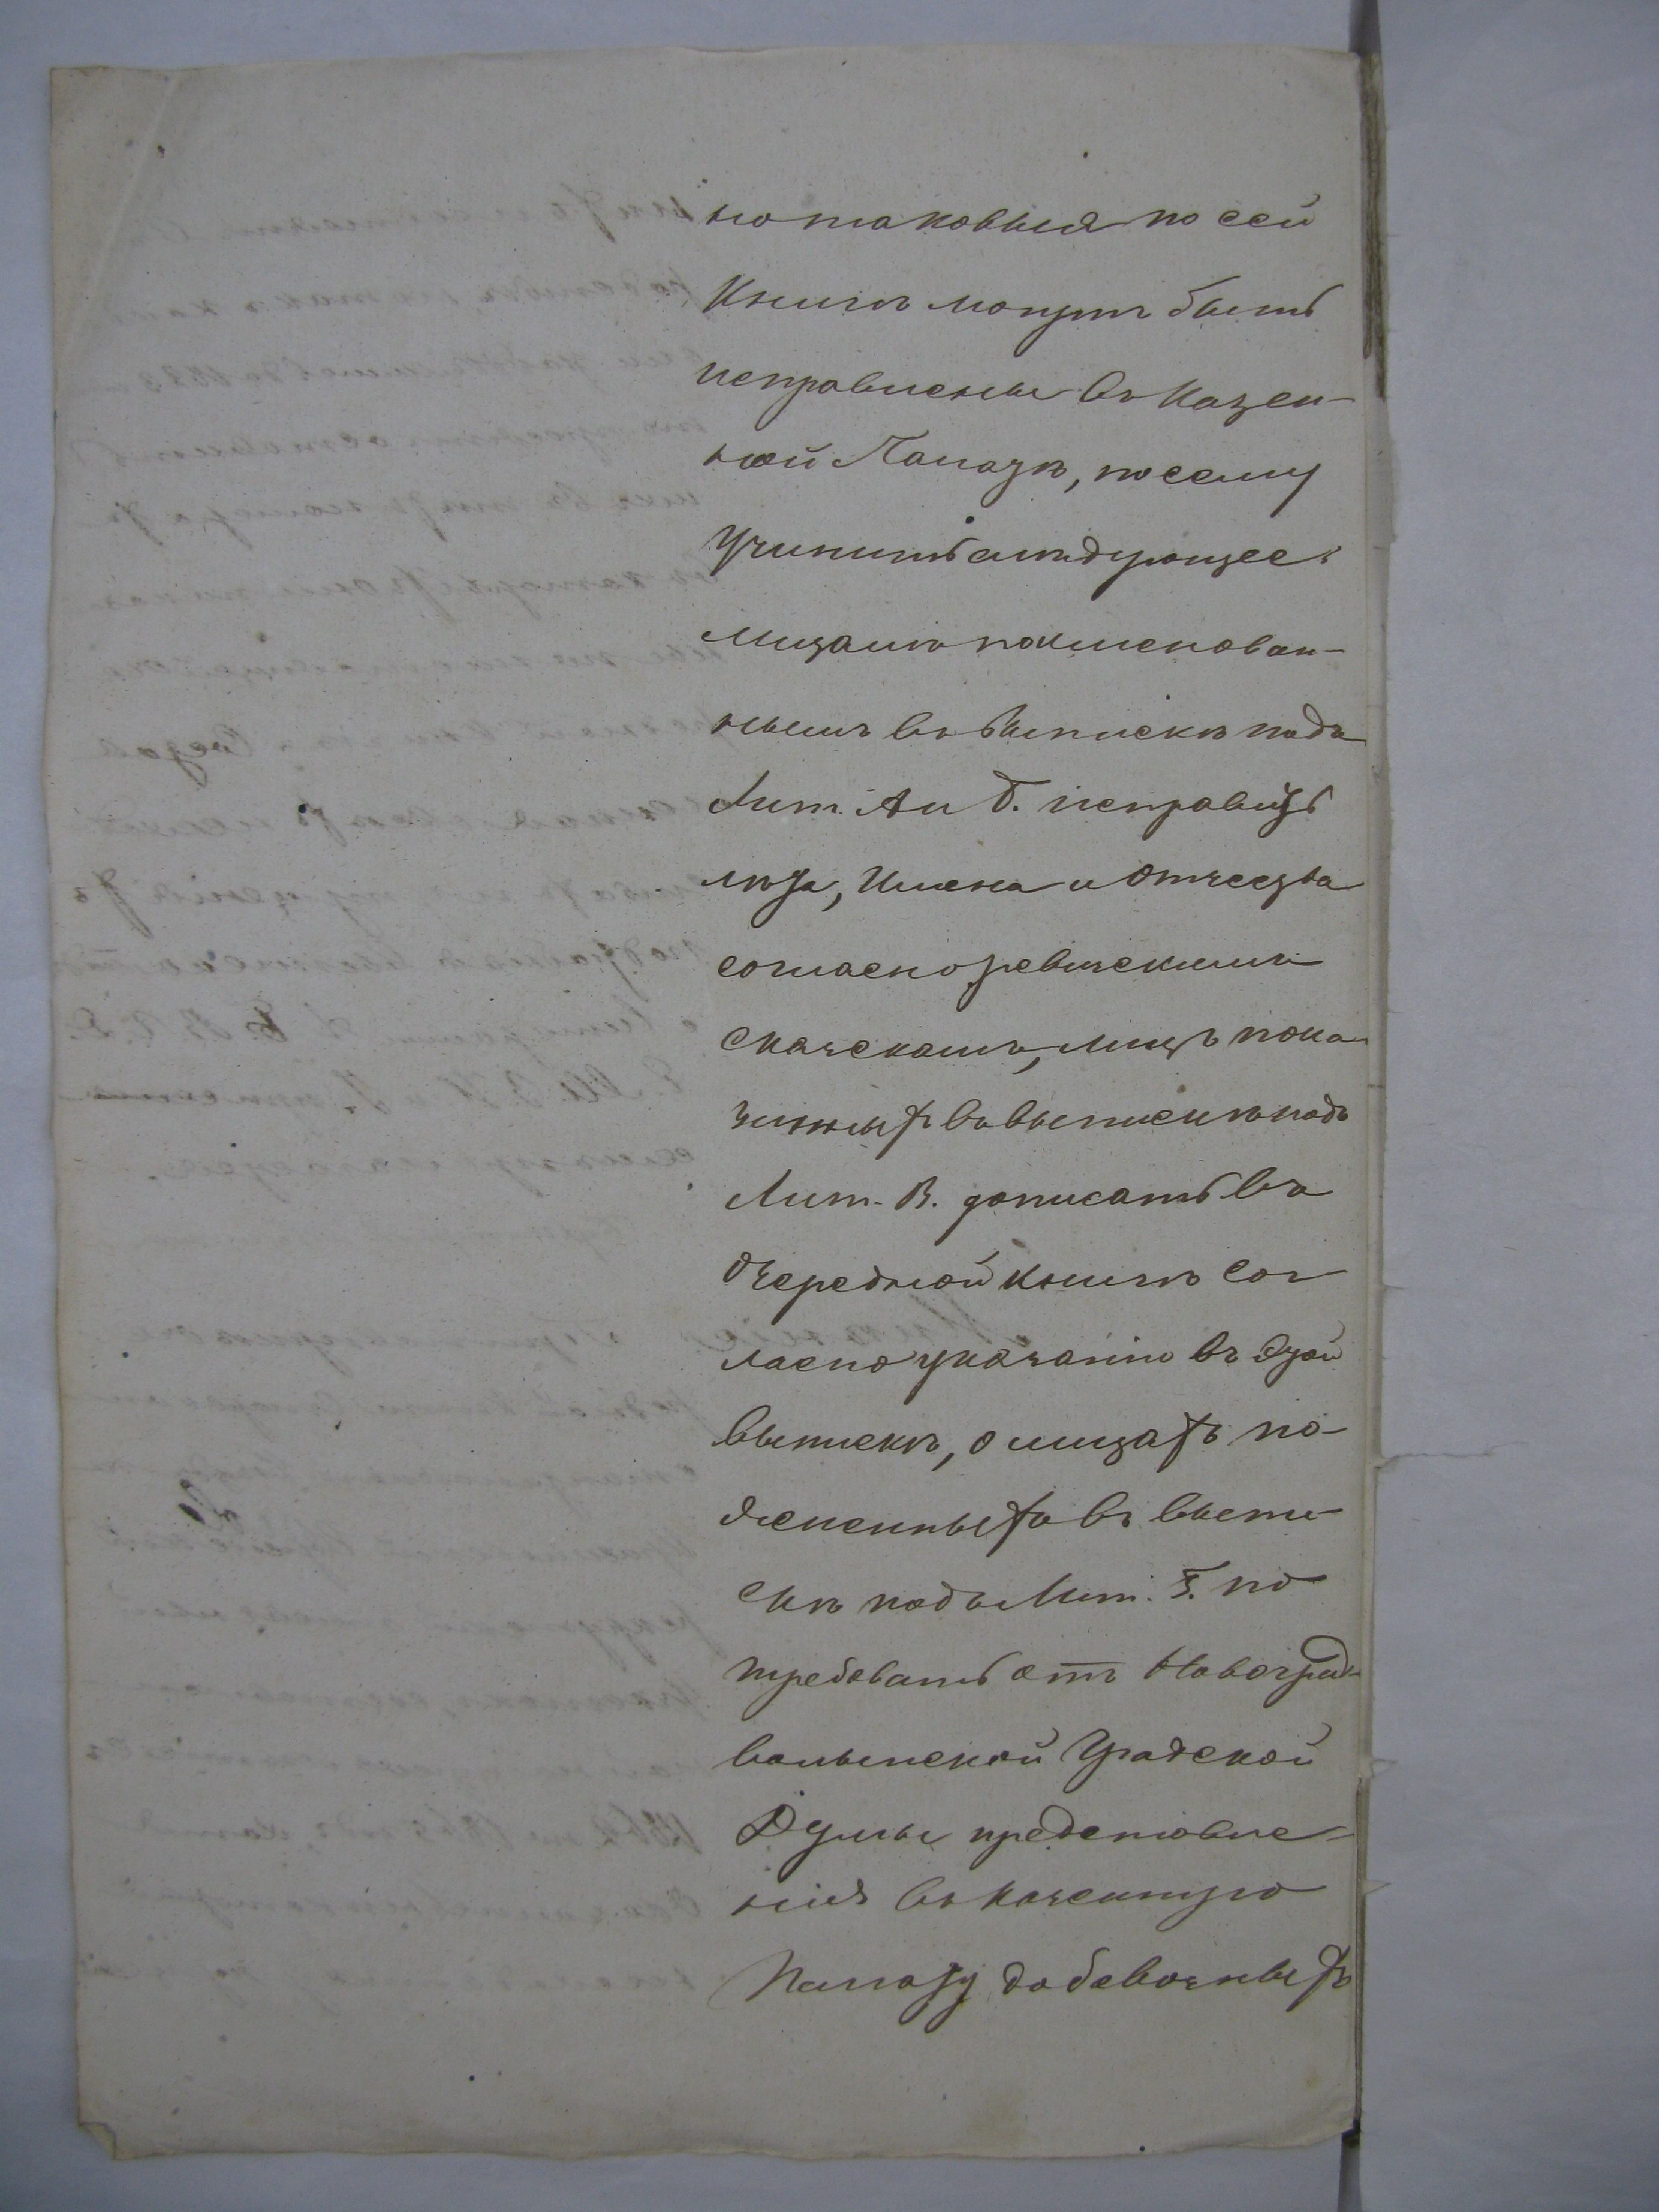 но таковыя по сей
Книгѣ могутъ быть
исправлены въ Казен-
ной Палатѣ, посему
учинить слѣдующее:
лицамъ поименован-
нымъ въ выпискѣ подъ
Лит. А и б. исправить
лѣта, Имена и Отчества
согласно ревизскимъ
сказскамъ, лицъ пока-
занныхъ въ выпискѣ подъ
Лит. В. дописать въ
очередной книгѣ сог-
ласно указанію въ этой
выпискѣ, о лицахъ по-
ясненныхъ въ выпи-
скѣ подъ Лит. Г. по
требовать отъ Новоград-
волынской Градской
Думы представле-
нія въ Казенную
Палату добавочныхъ